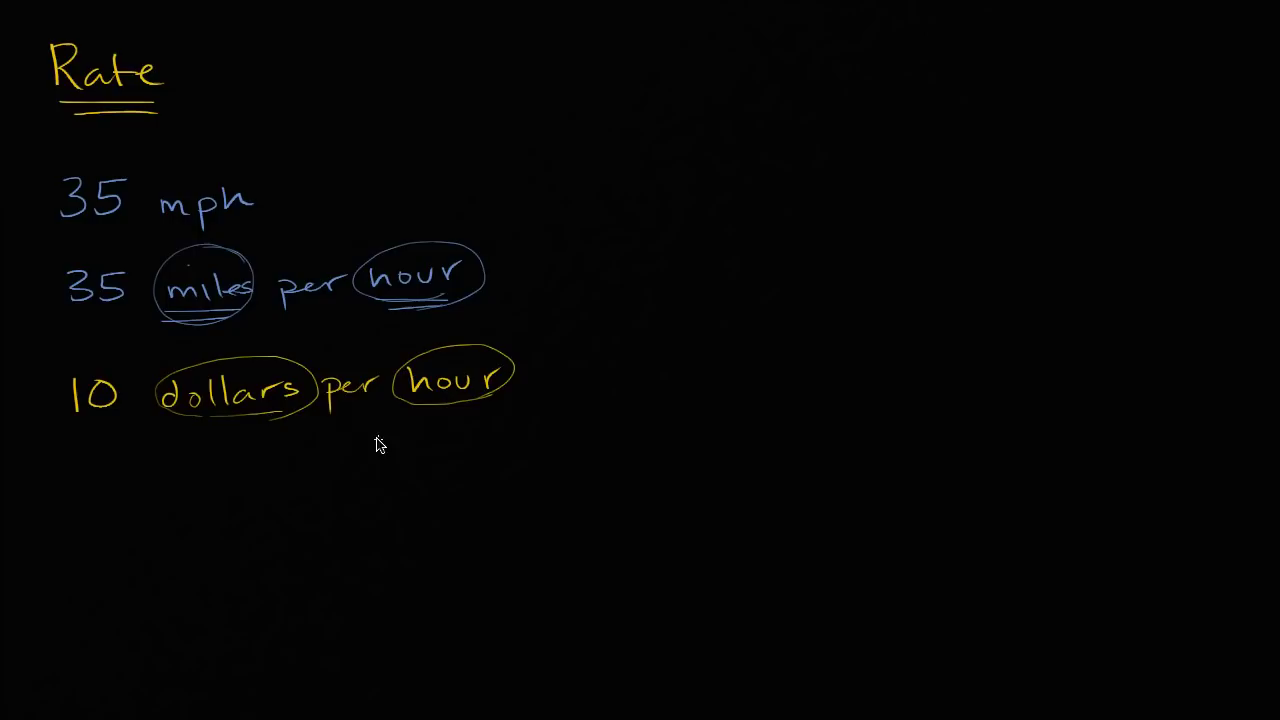 Rate
35 mph
35 miles per hour
10 dollars per hour